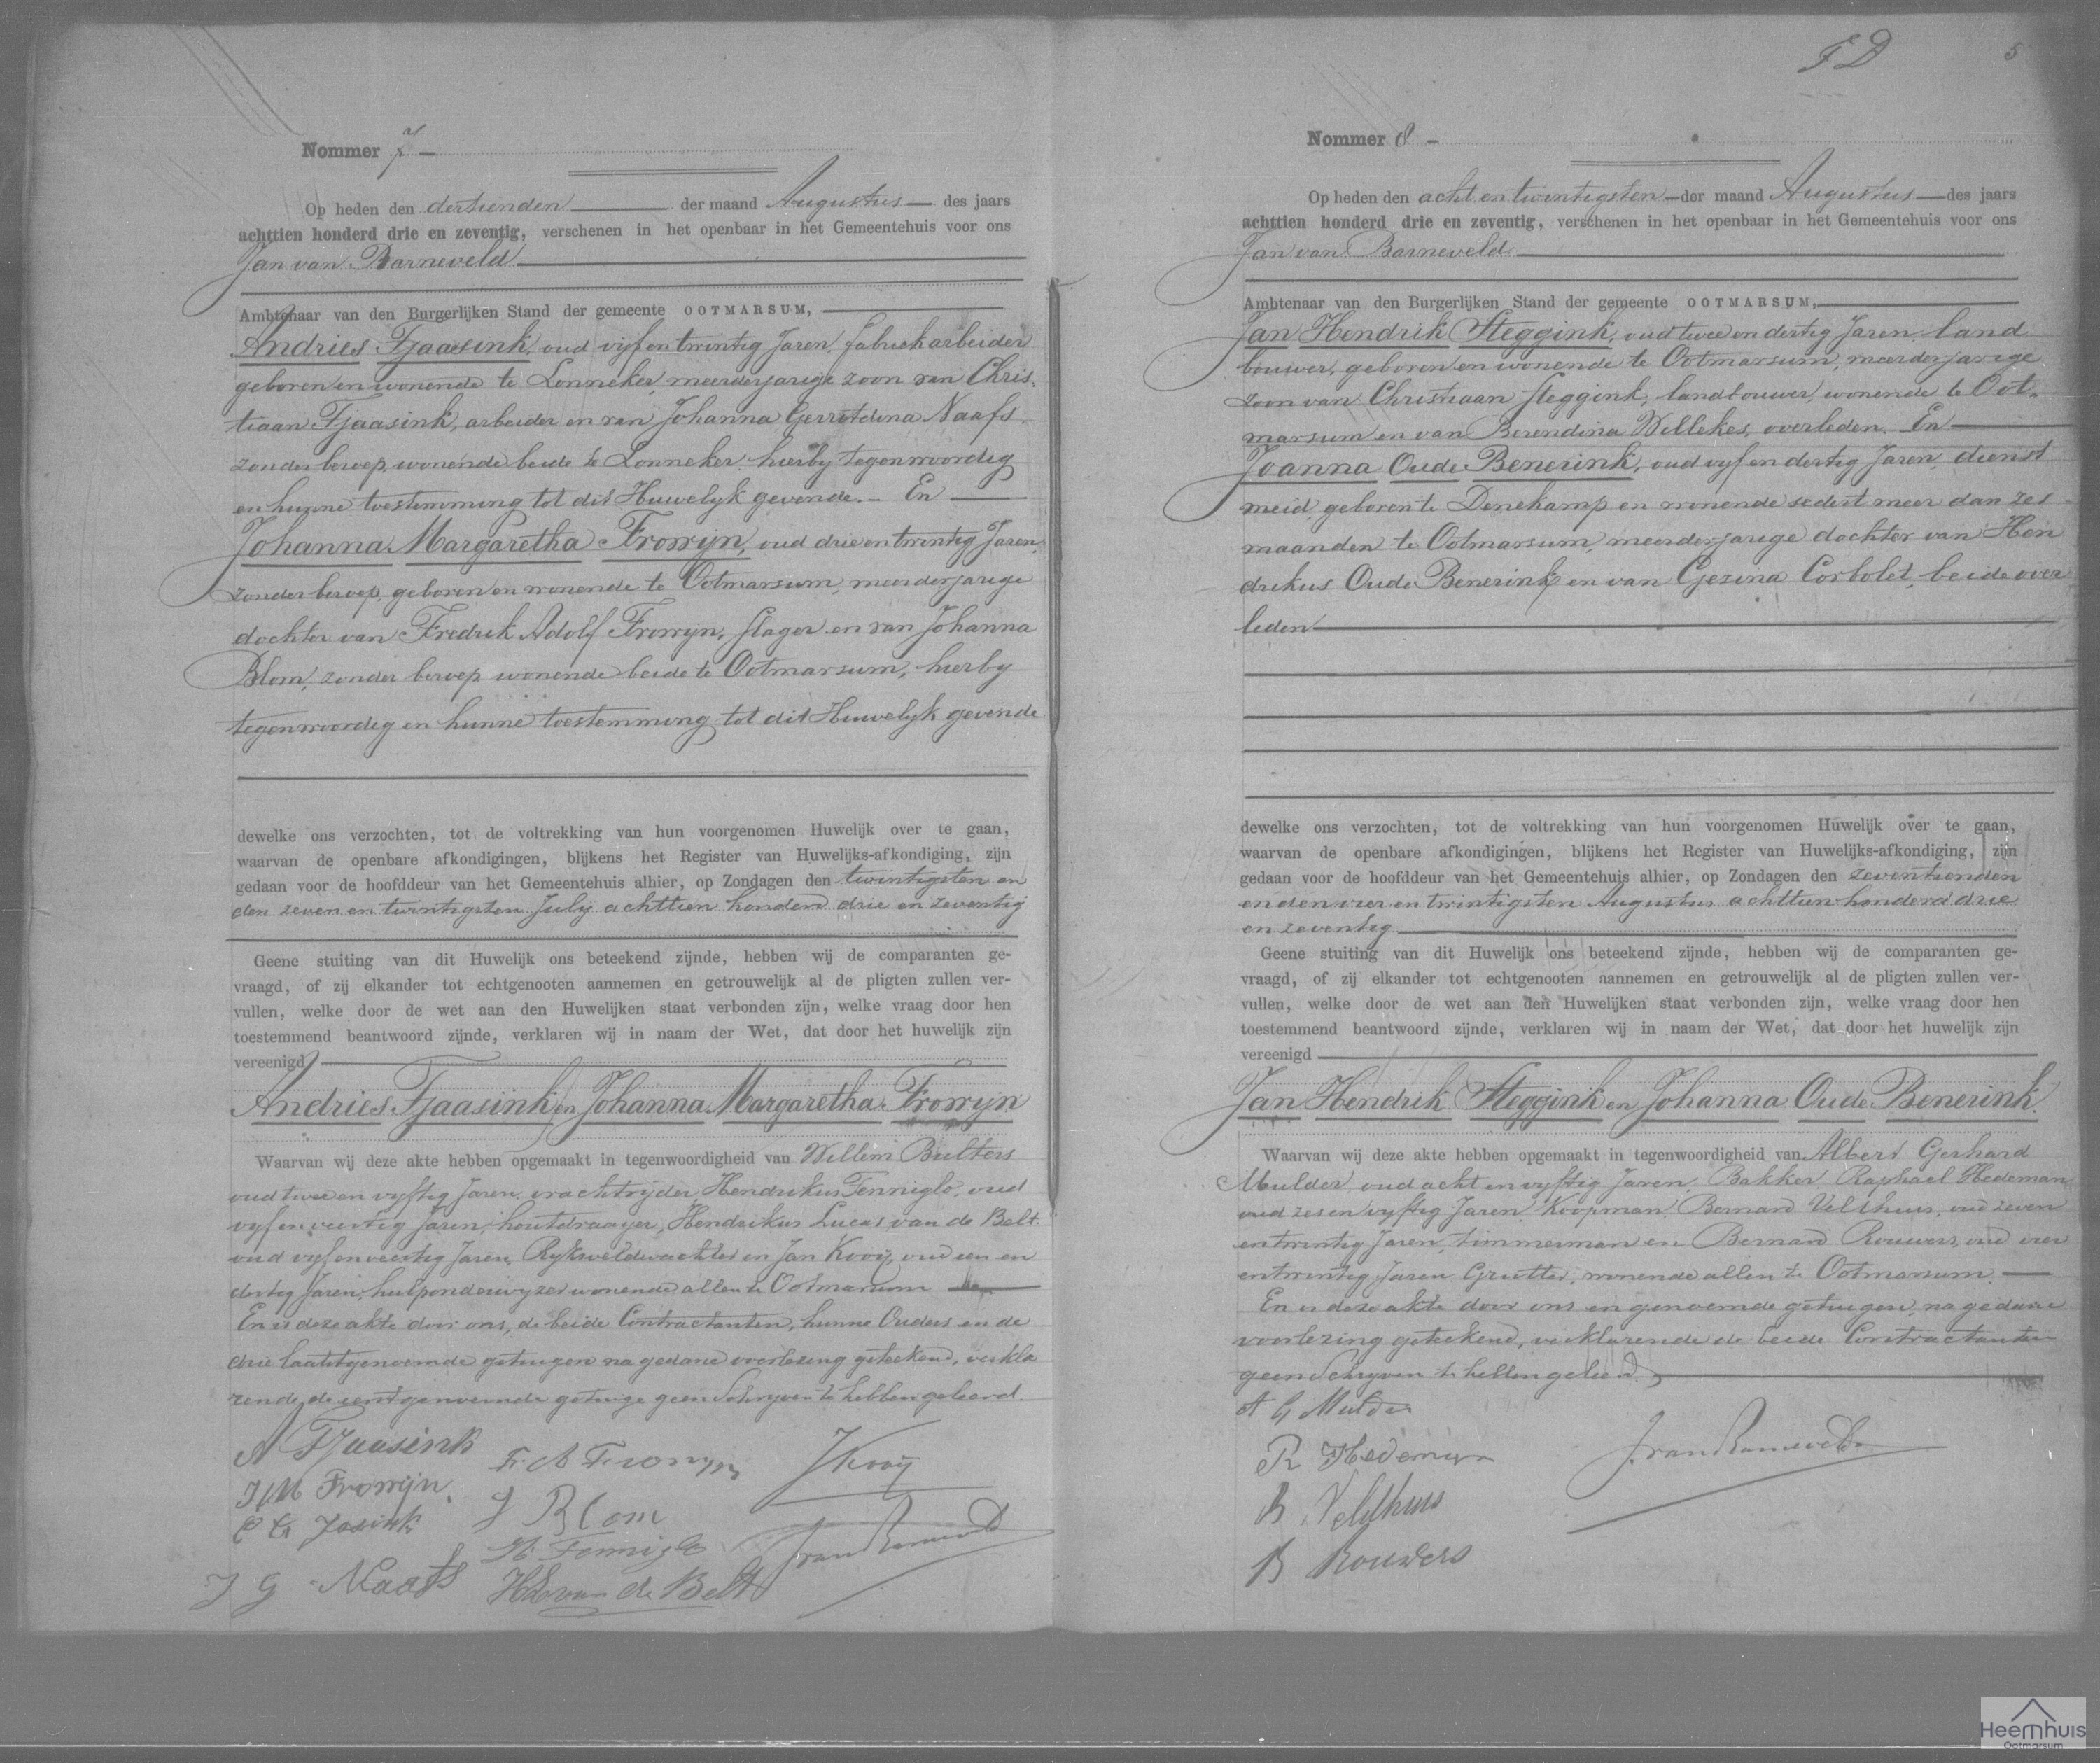 Nommer 7
Op heden den dertienden der maand Augustus des jaars
achttien honderd drie en zeventig, verschenen in het openbaar in het Gemeentehuis voor ons
Jan van Barneveld
Ambtenaar van den Burgerlijken Stand der gemeente OOTMARSUM,
Andries Tjaasink, oud vijf en twintig Jaren, fabriekarbeider
geboren en wonende te Lonneker, meerderjarige zoon van Chris-
tiaan Tjaasink, arbeider en van Johanna Gerritdina Naafs
zonder beroep, wonende beide te Lonneker, hierby tegenwoordig
en hunne toestemming tot dit Huwelyk gevende. - En
Johanna Margaretha Frowyn, oud drie en twintig Jaren,
zonder beroep, geboren en wonende te Ootmarsum, meerderjarige
dochter van Fredrik Adolf Frowyn, slager en van Johanna
Blom, zonder beroep wonende beide te Ootmarsum, hierby
tegenwoordig en hunne toestemming tot dit Huwelyk gevende
dewelke ons verzochten, tot de voltrekking van hun voorgenomen Huwelijk over te gaan,
waarvan de openbare afkondigingen, blijkens het Register van Huwelijks-afkondiging, zijn
gedaan voor de hoofddeur van het Gemeentehuis alhier, op Zondagen den twintigsten en
den zeven en twintigsten July achttien honderd drie en zeventig
Geene stuiting van dit Huwelijk ons beteekend zijnde, hebben wij de comparanten ge-
vraagd, of zij elkander tot echtgenooten aannemen en getrouwelijk al de pligten zullen ver-
vullen, welke door de wet aan den Huwelijken staat verbonden zijn, welke vraag door hen
toestemmend beantwoord zijnde, verklaren wij in naam der Wet, dat door het huwelijk zijn
vereenigd
Andries Tjaasink en Johanna Margaretha Frowyn
Waarvan wij deze akte hebben opgemaakt in tegenwoordigheid van Willem Bulters
oud twee en vyftig Jaren, vrachtryder, Hendrikus Tenniglo, oud
vyf en veertig Jaren, houtdraayer, Hendrikus Lucas van de Belt
oud vyf en veertig Jaren, Ryksveldwachter en Jan Kooij, oud een en
dertig Jaren, hulponderwyzer wonende allen te Ootmarsum
En is deze akte door ons, de beide Contractanten, hunne Ouders en de
drie laatstgenoemde getuigen na gedane voorlezing geteekend, verkla
rende, de eerstgenoemde getuige geen Schryven te hebben geleerd.
A Tjaasink
F. A Frowyn
J Kooij
J M Frowyn
J Blom
C Tr Jasink
H Tenniglo
J van Barneveld
J G Naafs
HL van de Belt
F D
5
Nommer 8
Op heden den acht en twintigsten der maand Augustus des jaars
achttien honderd drie en zeventig, verschenen in het openbaar in het Gemeentehuis voor ons
Jan van Barneveld
Ambtenaar van den Burgerlijken Stand der gemeente OOTMARSUM,
Jan Hendrik Steggink, oud twee en dertig Jaren, land
bouwer, geboren en wonende te Ootmarsum, meerderjarige
zoon van Christiaan Steggink, landbouwer, wonende te Oot-
marsum en van Berendina Wellekes, overleden. En
Joanna Oude Benerink, oud vyf en dertig Jaren, dienst
meid, geboren te Denekamp en wonende sedert meer dan zes
maanden te Ootmarsum, meerderjarige dochter van Hen
drikus Oude Benerink en van Gezina Corbolet, beide over
leden
dewelke ons verzochten, tot de voltrekking van hun voorgenomen Huwelijk over te gaan,
waarvan de openbare afkondigingen, blijkens het Register van Huwelijks-afkondiging, zijn
gedaan voor de hoofddeur van het Gemeentehuis alhier, op Zondagen den zeventienden
en den vier en twintigsten Augustus achttien honderd drie
en zeventig
Geene stuiting van dit Huwelijk ons beteekend zijnde, hebben wij de comparanten ge-
vraagd, of zij elkander tot echtgenooten aannemen en getrouwelijk al de pligten zullen ver-
vullen, welke door de wet aan den Huwelijken staat verbonden zijn, welke vraag door hen
toestemmend beantwoord zijnde, verklaren wij in naam der Wet, dat door het huwelijk zijn
vereenigd
Jan Hendrik Steggink en Johanna Oude Benerink.
Waarvan wij deze akte hebben opgemaakt in tegenwoordigheid van Albert Gerhard
Mulder, oud acht en vyftig Jaren, Bakker, Raphael Hedeman
oud zes en vyftig Jaren Koopman, Bernard Velthuis, oud zeven
en twintig Jaren, timmerman en Bernard Rouwers, oud vier
en twintig Jaren Grutter, wonende allen te Ootmarsum.
En is deze akte door ons en genoemde getuigen, na gedane
voorlezing geteekend, verklarende de beide Contractanten
geen Schryven te hebben geleerd.
A G Mulder
R Hedeman
J. van Barneveld
B Veldhuis
B Rouwers
Heemhuis
Ootmarsum